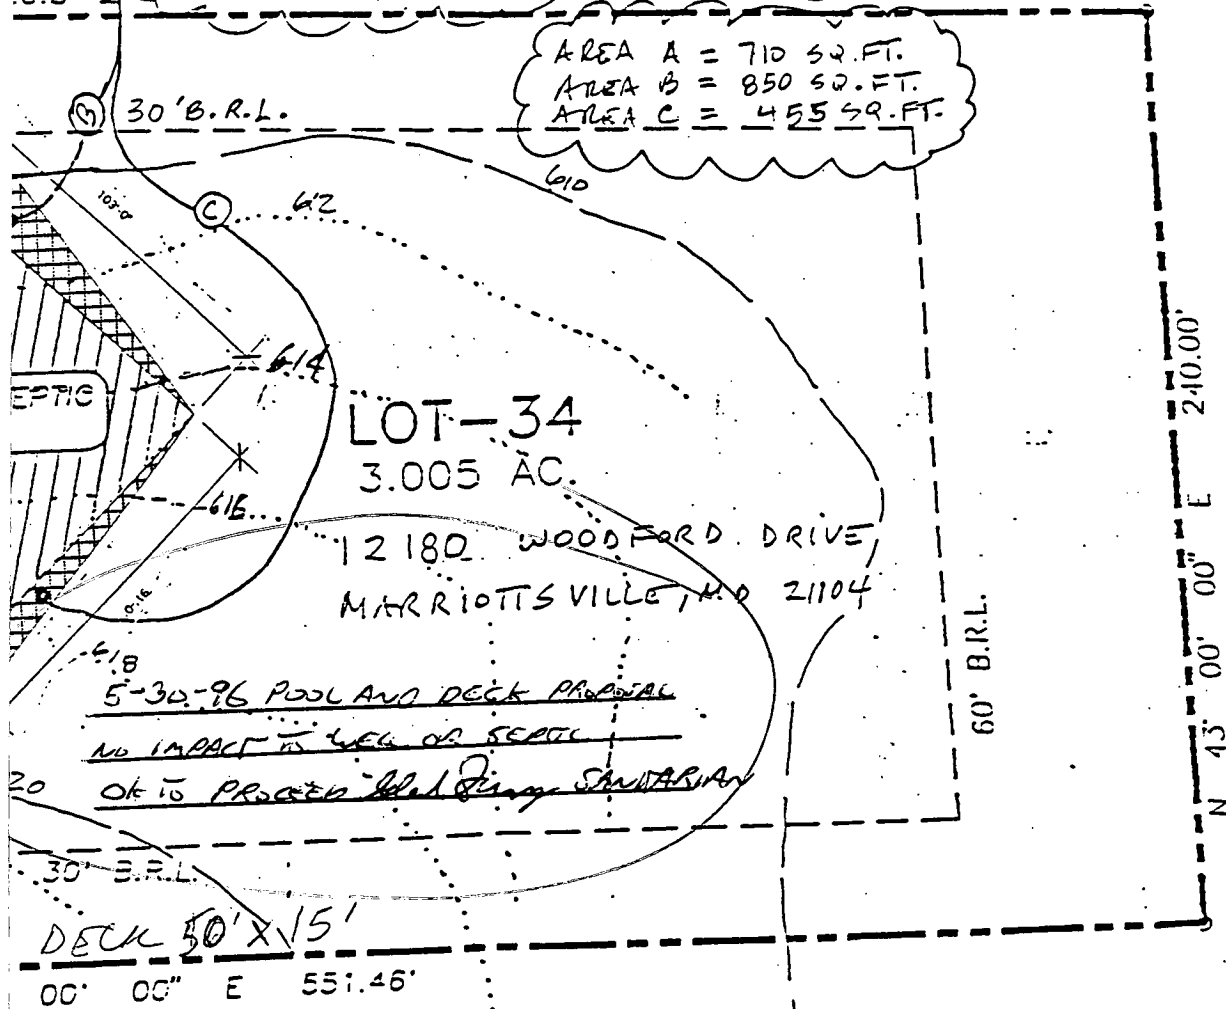 AREA A = 710 SQ.FT.
AREA B = 850 SQ.FT.
AREA C = 455 SQ.FT.
B 30' B.R.L.
610
C
612
103'-0"
614
EPTIC
LOT-34
3.005 AC.
616
12180 WOODFORD DRIVE
MARRIOTTSVILLE, MD 21104
618
5-30-96 POOL AND DECK PROPOSAL
NO IMPACT TO WELL OR SEPTIC
OK TO PROCEED SANITARIAN
20
30' B.R.L.
DECK 50' X 15'
00' 00" E 551.46'
60' B.R.L.
N 43° 00' 00" E 240.00'